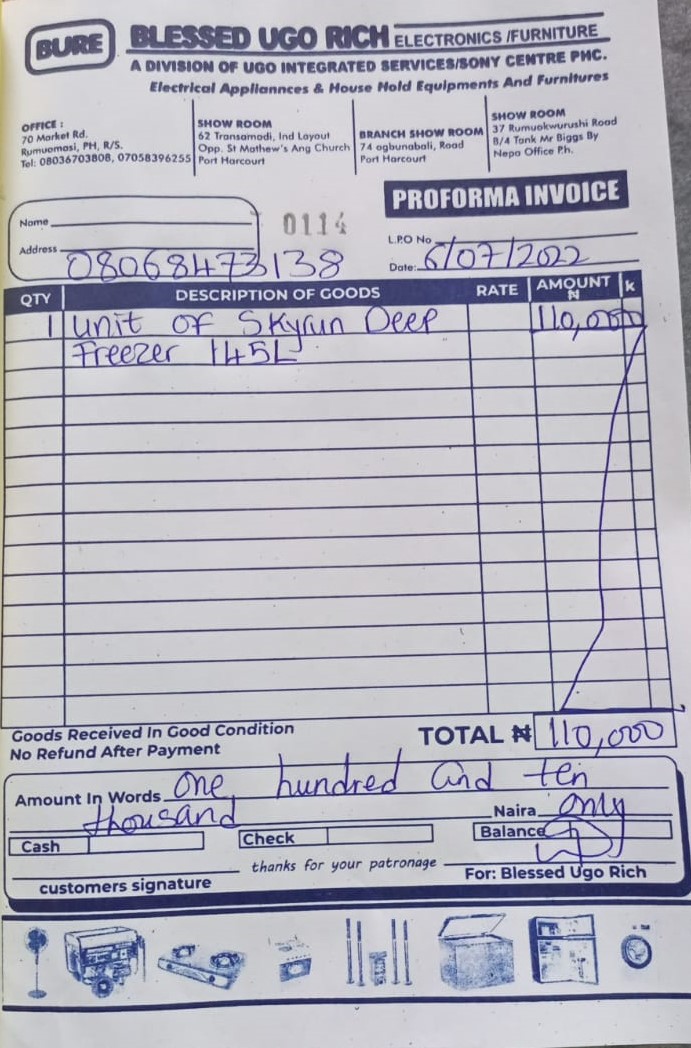 BURE BLESSED UGO RICH ELECTRONICS /FURNITURE
A DIVISION OF UGO INTEGRATED SERVICES/SONY CENTRE PHC.
Electrical Appliannces & House Hold Equipments And Furnitures
OFFICE :
70 Market Rd.
Rumuomasi, PH, R/S.
Tel: 08036703808, 07058396255
SHOW ROOM
62 Transamadi, Ind Layout
Opp. St Mathew's Ang Church
Port Harcourt
BRANCH SHOW ROOM
74 ogbunabali, Road
Port Harcourt
SHOW ROOM
37 Rumuokwurushi Road
B/4 Tank Mr Biggs By
Nepa Office P.h.
PROFORMA INVOICE
Name
0114
Address 08068473138
L.P.O No
Date: 6/07/2022
QTY DESCRIPTION OF GOODS RATE AMOUNT ₦ k
1 unit of Skyrun Deep 110,000
Freezer 145L
Goods Received In Good Condition
No Refund After Payment
TOTAL ₦ 110,000
Amount In Words one hundred and ten
thousand Naira only
Cash Check Balance
thanks for your patronage
customers signature
For: Blessed Ugo Rich